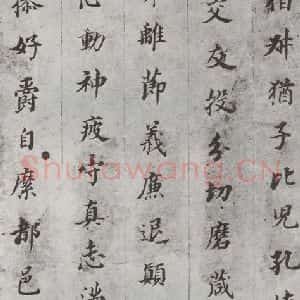 伯叔猶子比兒孔懷
交友投分切磨箴
弗離節義廉退顛
心動神疲守真志滿
操好爵自縻都邑
Shufawang.CN